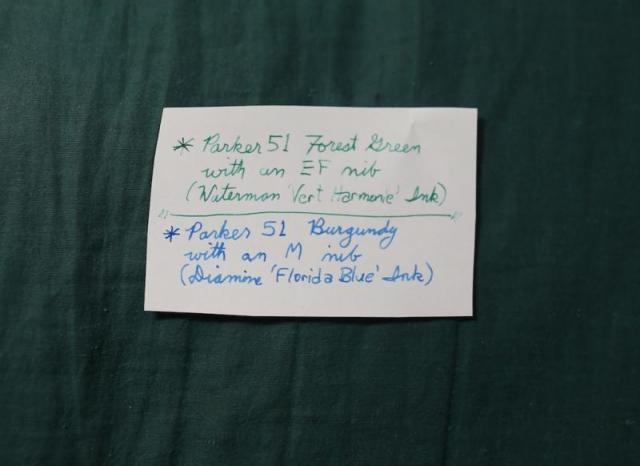 * Parker 51 Forest Green
with an EF nib
(Waterman 'Vert Harmonie' Ink)
* Parker 51 Burgundy
with an M nib
(Diamine 'Florida Blue' Ink)